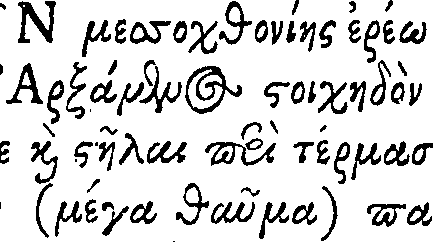 Ν μεσσοχθονίης ἐρέω
Ἀρξάμενος στοιχηδὸν
ε καὶ στῆλαι περὶ τέρμασ
(μέγα θαῦμα) πα